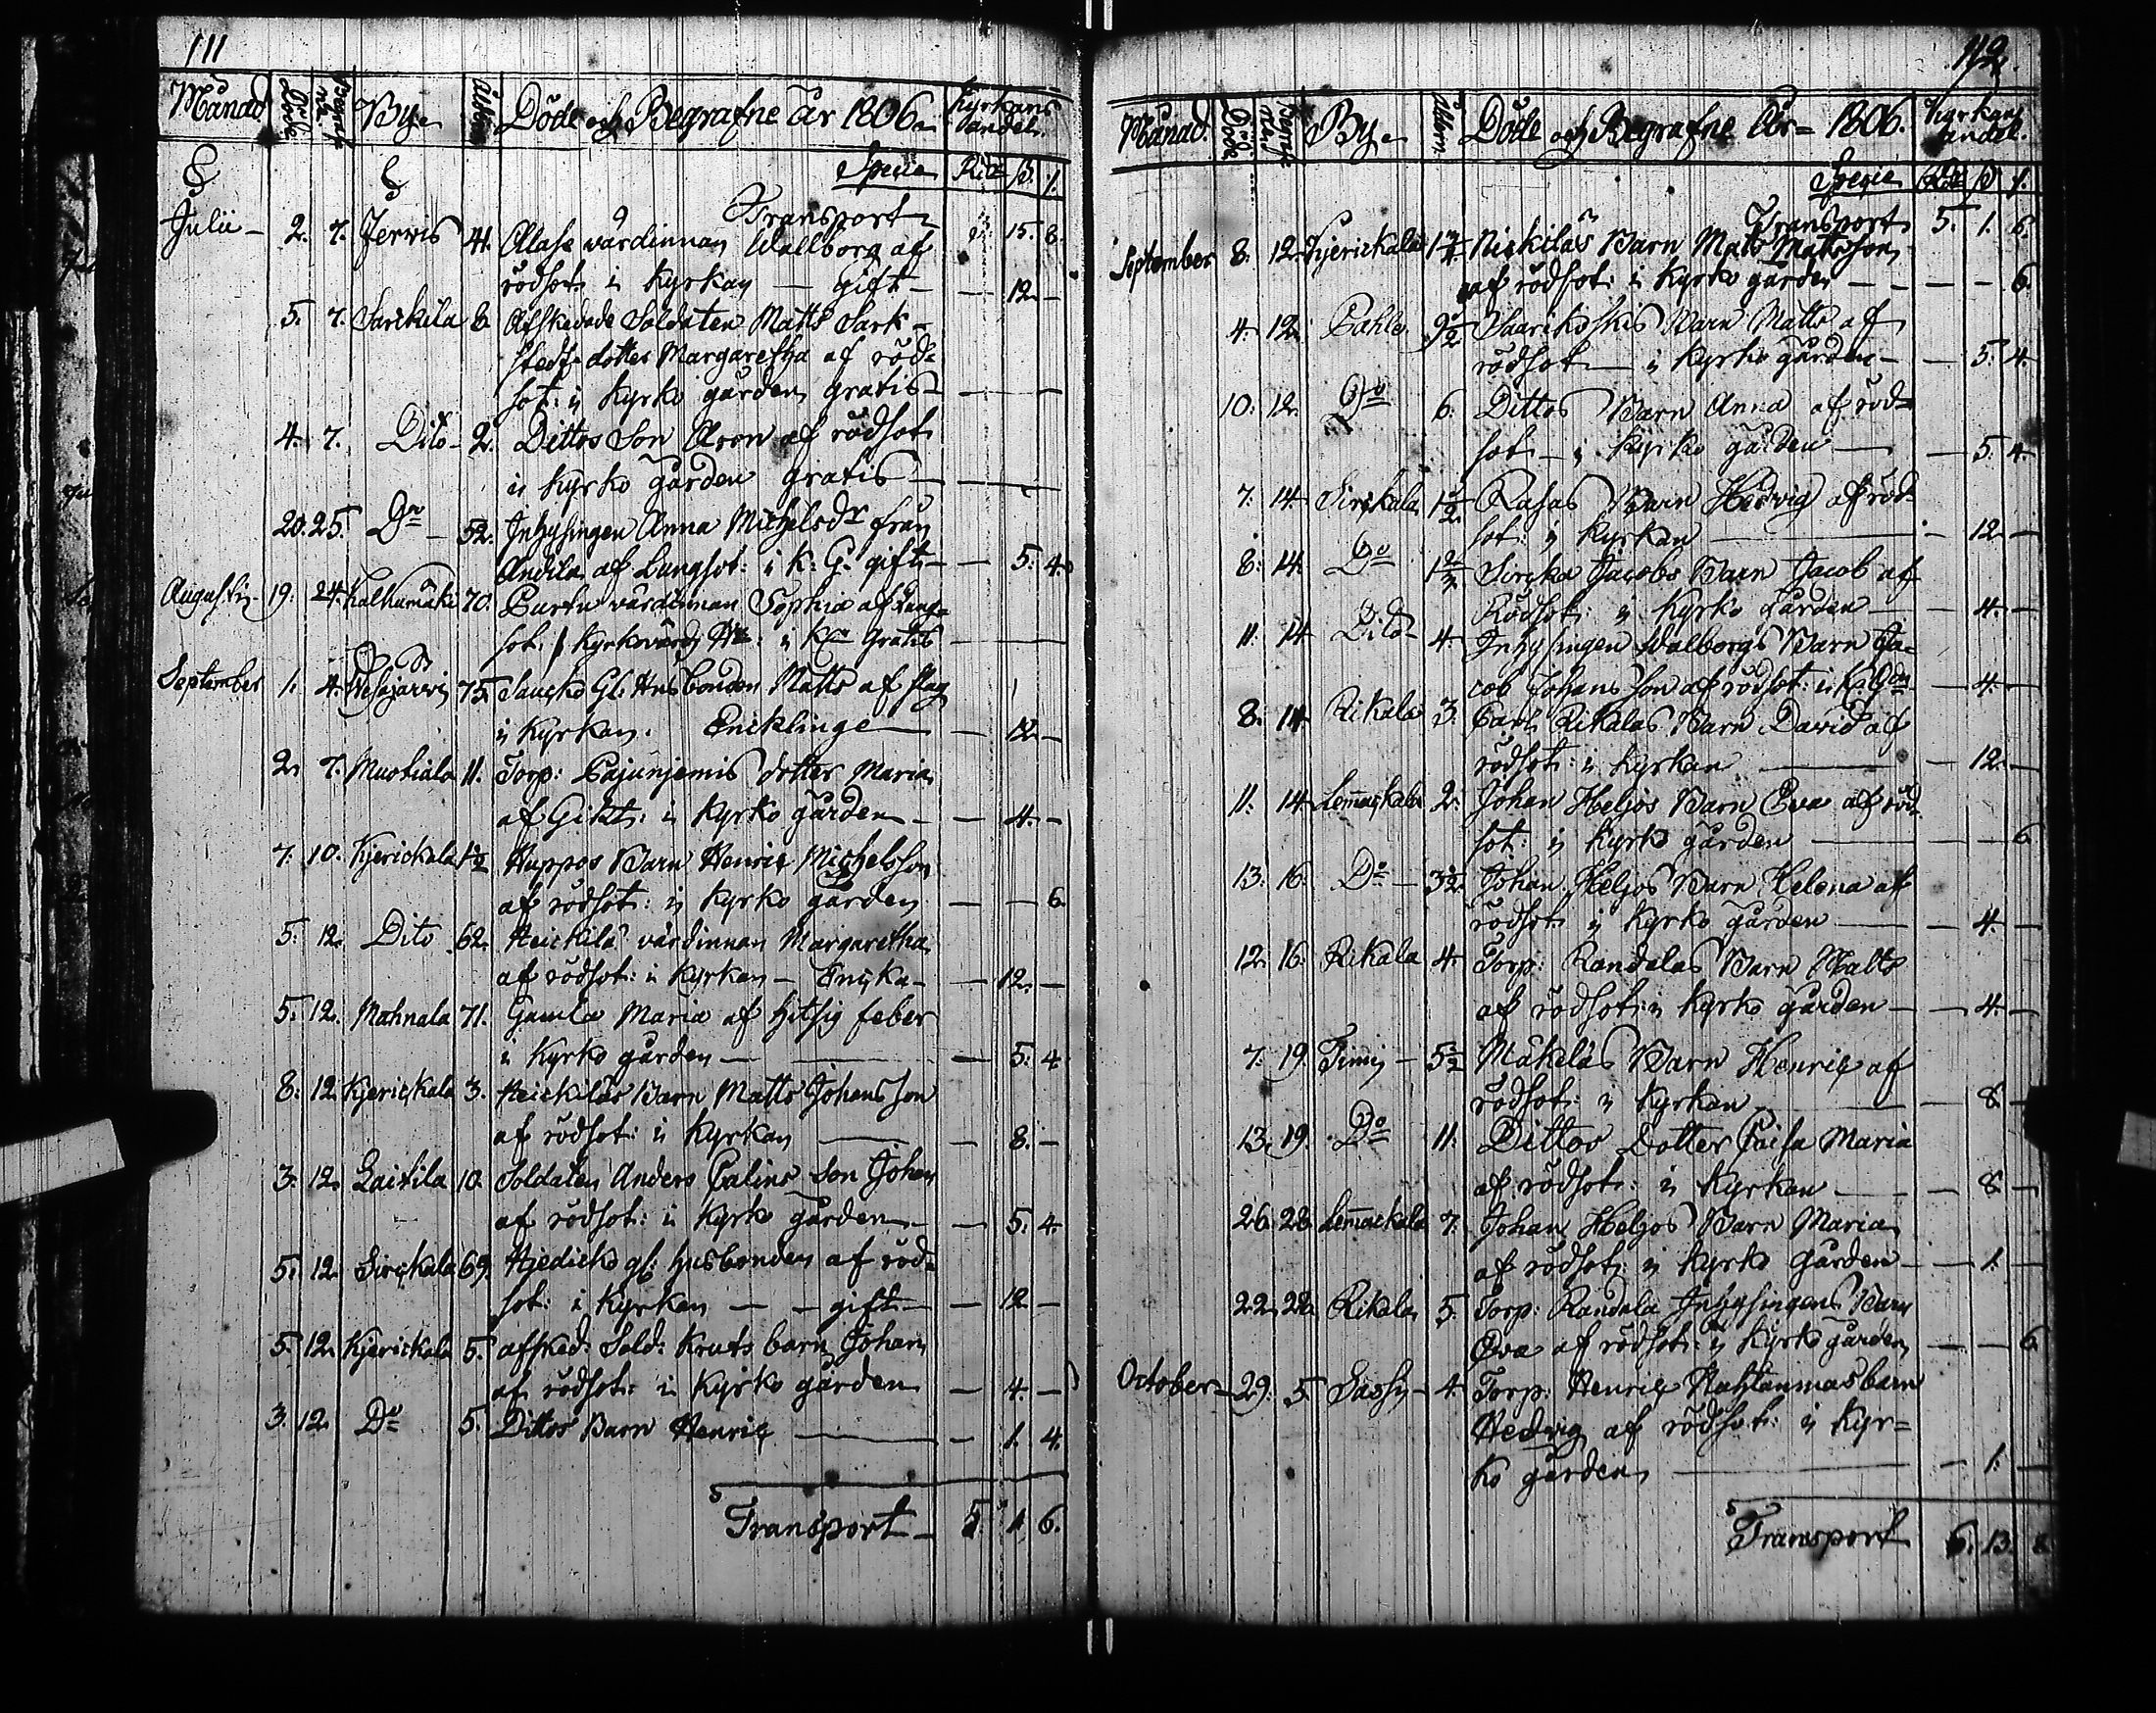 111
Månad Döde Begraf= ne By. Åldern Döde och Begrafne År 1806. Kyrkans andel.
Specie Rd ß. 1.
Transport 15. 8.
Julii 2. 7. Jerwis 41. Alase värdinnan Wallborg af
rödsot: i Kyrkan — gift — — 12. —
5. 7. Sarkila 8. Afskedade Soldaten Matts Sark=
stedts dotter Margaretha af röd=
sot: i Kyrko gården gratis — — —
4. 7. Dito 2. Dittos Son Aron af rödsot
i Kyrko gården gratis — — —
20. 25. Do 52. Inhysingen Anna Michelsdr från
Andila af Lungsot: i K. G. gift — — 5. 4.
Augusti 19. 24. Kalkumäki 70. Purtu värdinnan Sophia af Lung=
sot. Gratis —
September 1. 4. Wesajärwi 75. Saucko Gl: Husbonden Matts af slag
i Kyrkan. Encklinge — — 12. —
2. 7. Muotiala 11. Torp: Pajunjemis dotter Maria
af Gikt: i Kyrko gården — — 4. —
7. 10. Kjerickala 1½ Huppos Barn Henric Michelsson
af rödsot: i Kyrko gården — — 6.
5. 12. Dito 62. Heickilä värdinnan Margaretha
af rödsot: i Kyrkan — Encka — — 12. —
5. 12. Mahnala 71. Gamla Maria af hitsig feber
i Kyrko gården — — 5. 4.
8. 12. Kjerickala 3. Heickiläs Barn Matts Johansson
af rödsot: i Kyrkan — — 8. —
3. 12. Laitila 10. Soldaten Anders Palins Son Johan
af rödsot: i Kyrko gården — — 5. 4.
5. 12. Sirckala 69. Hjedicko gl: husbonden af röd=
sot: i Kyrkan — — gift — — 12 —
5. 12. Kjerickala 5. afsked: Sold: Kruts barn Johan
af rödsot: i Kyrko gården — 4. —
3. 12. Do 5. Dittos Barn Henric — — 1. 4.
Transport — 5. 1. 6.
112.
Månad. Döde Begraf= ne. By. Åldern. Döde och Begrafne År= 1806. Kyrkans andel.
Specie Rd ß 1.
Transport 5. 1. 6.
September 8. 12. Kjerickala Nickiläs Barn Matts Mattsson
af rödsot: i Kyrko gården — — — — 6.
4. 12. Pahle Saarikoskis Barn Matts af
rödsot — i Kyrko gården — — 5. 4.
10. 12. Do 6. Dittos Barn Anna af röd=
sot — i Kyrko gården — — 5. 4.
7. 14. Sirckala 1½ Rasas Barn Hedvig af röd=
sot: i Kyrkan — — 12. —
8. 14. Do Sircka Jacobs Barn Jacob af
Rödsot: i Kyrko Gården — — 4. —
11. 14. Dito 4. Inhysingen Walborgs Barn Ja=
cob Johans Son af rödsot: i K. Gdn — 4. —
8. 14. Rikala 3. Carl Rikalas Barn David af
rödsot: i Kyrkan — — 12. —
11. 14. Lemackala 2. Johan Heljos Barn Eva af röd=
sot: i Kyrko gården — — — 6.
13. 16. Do 3½ Johan Heljos Barn Helena af
rödsot: i Kyrko gården — — 4. —
12. 16. Rikala 4. Torp: Randalas Barn Matts
af rödsot: i Kyrko gården — — 4. —
7. 19. Timi 5½ Mäkeläs Barn Henric af
rödsot: i Kyrkan — — 8. —
13. 19. Do 11. Dittos Dotter Caisa Maria
af rödsot: i Kyrkan — — 8. —
26. 28. Lemackala 7. Johan Heljos Barn Maria
af rödsot: i Kyrko Gården — — 1. —
22. 28. Rikala 5. Torp: Randala Inhysingens Barn
Eva af rödsot: i Kyrko gården — — 6.
October 29. 5. Sassi 4. Torp: Henric Nahtanmas barn
Hedvig af rödsot: i Kyr=
ko gården — — 1. —
Transport 6. 13. 8.